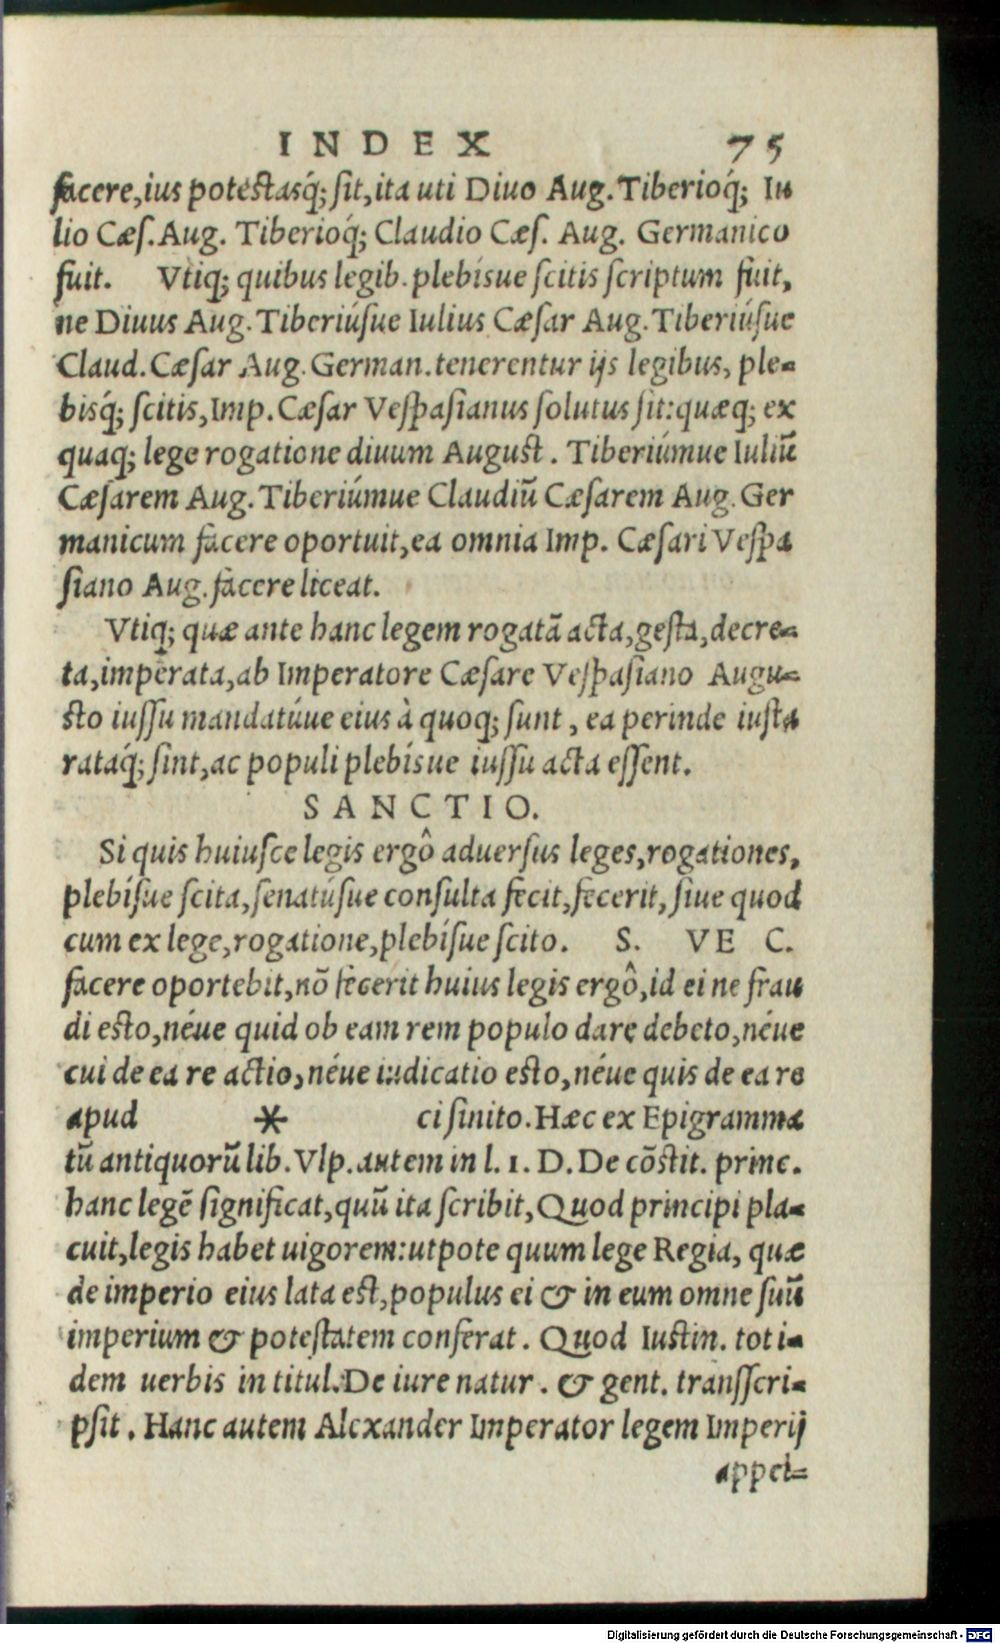 INDEX 75
facere,ius potéstasq́; sit,ita uti Diuo Aug.Tiberioq́; Iu
lio Cæſ.Aug. Tiberioq́; Claudio Cæſ. Aug. Germanico
fuit. Vtiq; quibus legib.plebísue ſcitis ſcriptum fuit,
ne Diuus Aug.Tiberiúſue Iulius Cæſar Aug.Tiberiúſue
Claud.Cæſar Aug.German.tenerentur ijs legibus, ple-
bisq́; ſcitis,Imp.Cæſar Veſpaſianus ſolutus ſit:quæq; ex
quaq; lege rogatione diuum August. Tiberiúmue Iuliũ
Cæſarem Aug.Tiberiúmue Claudiũ Cæſarem Aug.Ger
manicum facere oportuit,ea omnia Imp. Cæſari Veſpa
ſiano Aug.facere liceat.
Vtiq; quæ ante hanc legem rogatã acta,geſta,decre-
ta,imperata,ab Imperatore Cæſare Veſpaſiano Augu-
sto iuſſu mandatúue eius à quoq; ſunt, ea perinde iuſta
rataq́; ſint,ac populi plebísue iuſſu acta eſſent.
SANCTIO.
Si quis huiuſce legis ergô aduerſus leges,rogationes,
plebíſue ſcita,ſenatúſue conſulta fecit,fecerit, ſiue quod
cum ex lege,rogatione,plebíſue ſcito. S. VE C.
facere oportebit,nõ fecerit huius legis ergô,id ei ne frau
di esto,néue quid ob eam rem populo dare debeto,néue
cui de ea re actio,néue iudicatio esto,néue quis de ea re
apud * ci ſinito.Hæc ex Epigramma
tũ antiquorũ lib.Vlp.autem in l. 1. D. De cõstit. princ.
hanc legẽ ſignificat,quũ ita ſcribit,Quod principi pla-
cuit,legis habet uigorem:utpote quum lege Regia, quæ
de imperio eius lata est,populus ei & in eum omne ſuũ
imperium & poteſtatem conferat. Quod Iustin. toti-
dem uerbis in titul.De iure natur. & gent. transſcri-
pſit. Hanc autem Alexander Imperator legem Imperij
appel-
Digitalisierung gefördert durch die Deutsche Forschungsgemeinschaft - DFG